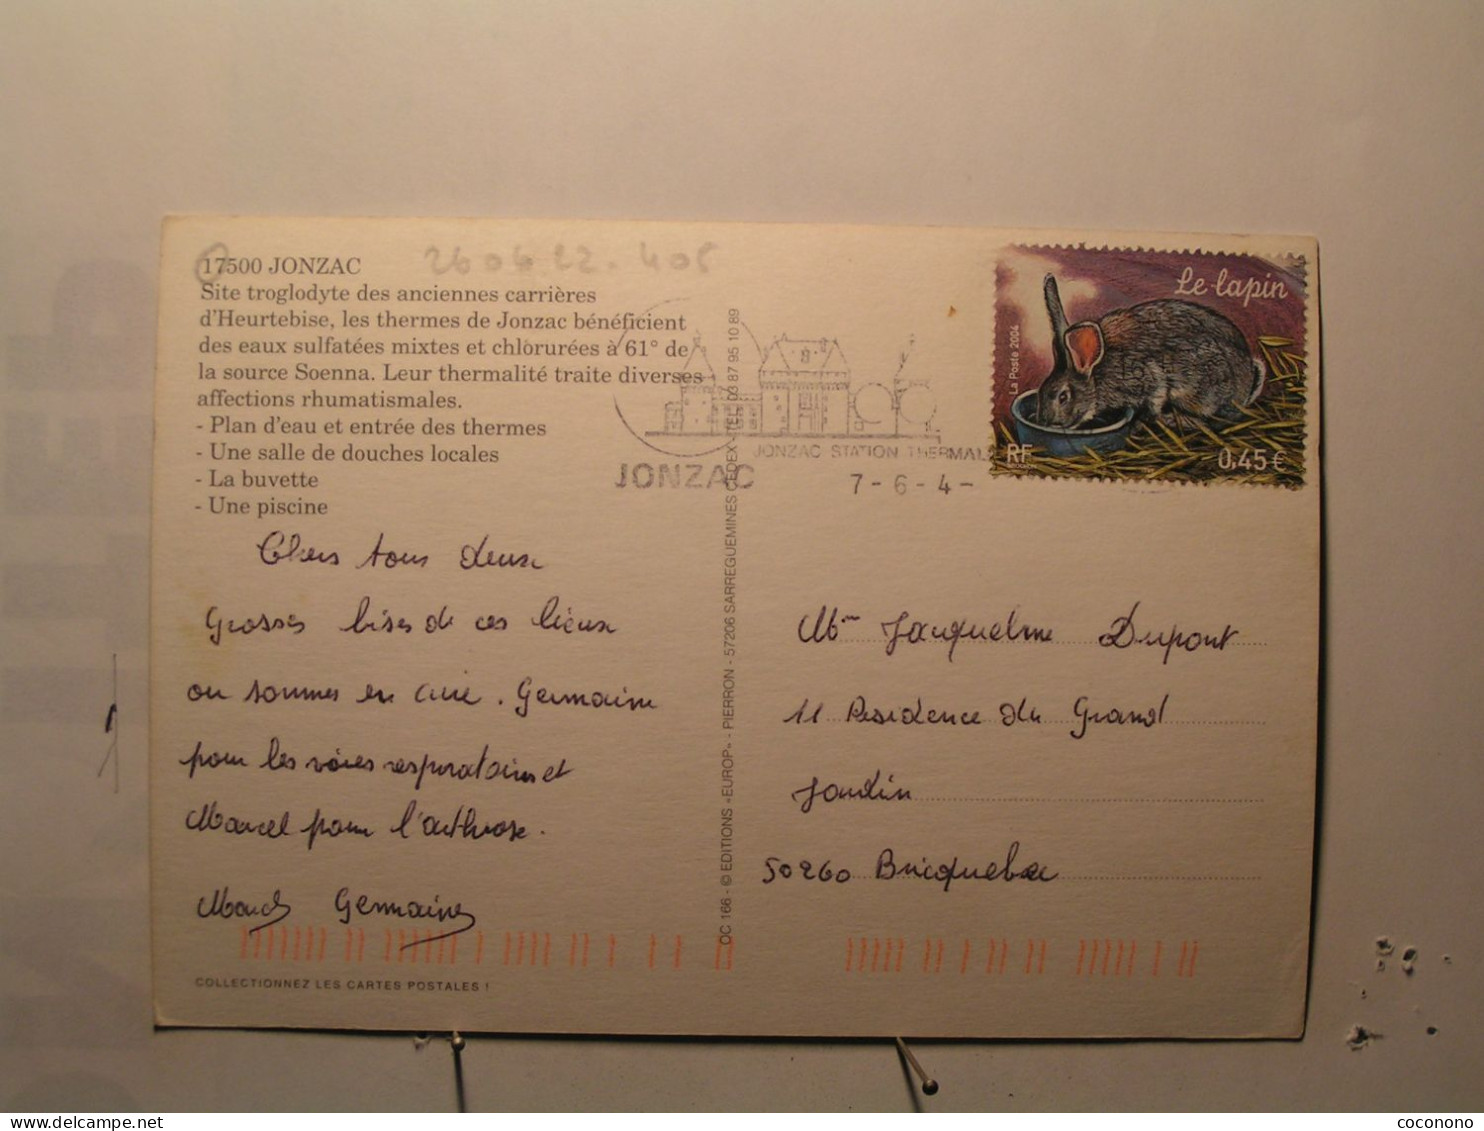 17500 JONZAC
26 04 22 . 405
Site troglodyte des anciennes carrières
d'Heurtebise, les thermes de Jonzac bénéficient
des eaux sulfatées mixtes et chlorurées à 61° de
la source Soenna. Leur thermalité traite diverses
affections rhumatismales.
- Plan d'eau et entrée des thermes
- Une salle de douches locales
- La buvette
- Une piscine
Chers tous deux
Grosses bises de ces lieux
ou sommes en cure. Germaine
pour les voies respiratoires et
Marcel pour l'arthrose.
Marcel Germaine
COLLECTIONNEZ LES CARTES POSTALES !
OC 166 - © EDITIONS «EUROP» - PIERRON - 57206 SARREGUEMINES CEDEX - TEL. 03 87 95 10 89
JONZAC STATION THERMAL
JONZAC
7 - 6 - 4 -
Le lapin
La Poste 2004
RF
0,45€
Mme Jacqueline Dupont
11 Residence du Grand
Jardin
50260 Bricquebec
www.delcampe.net
coconono